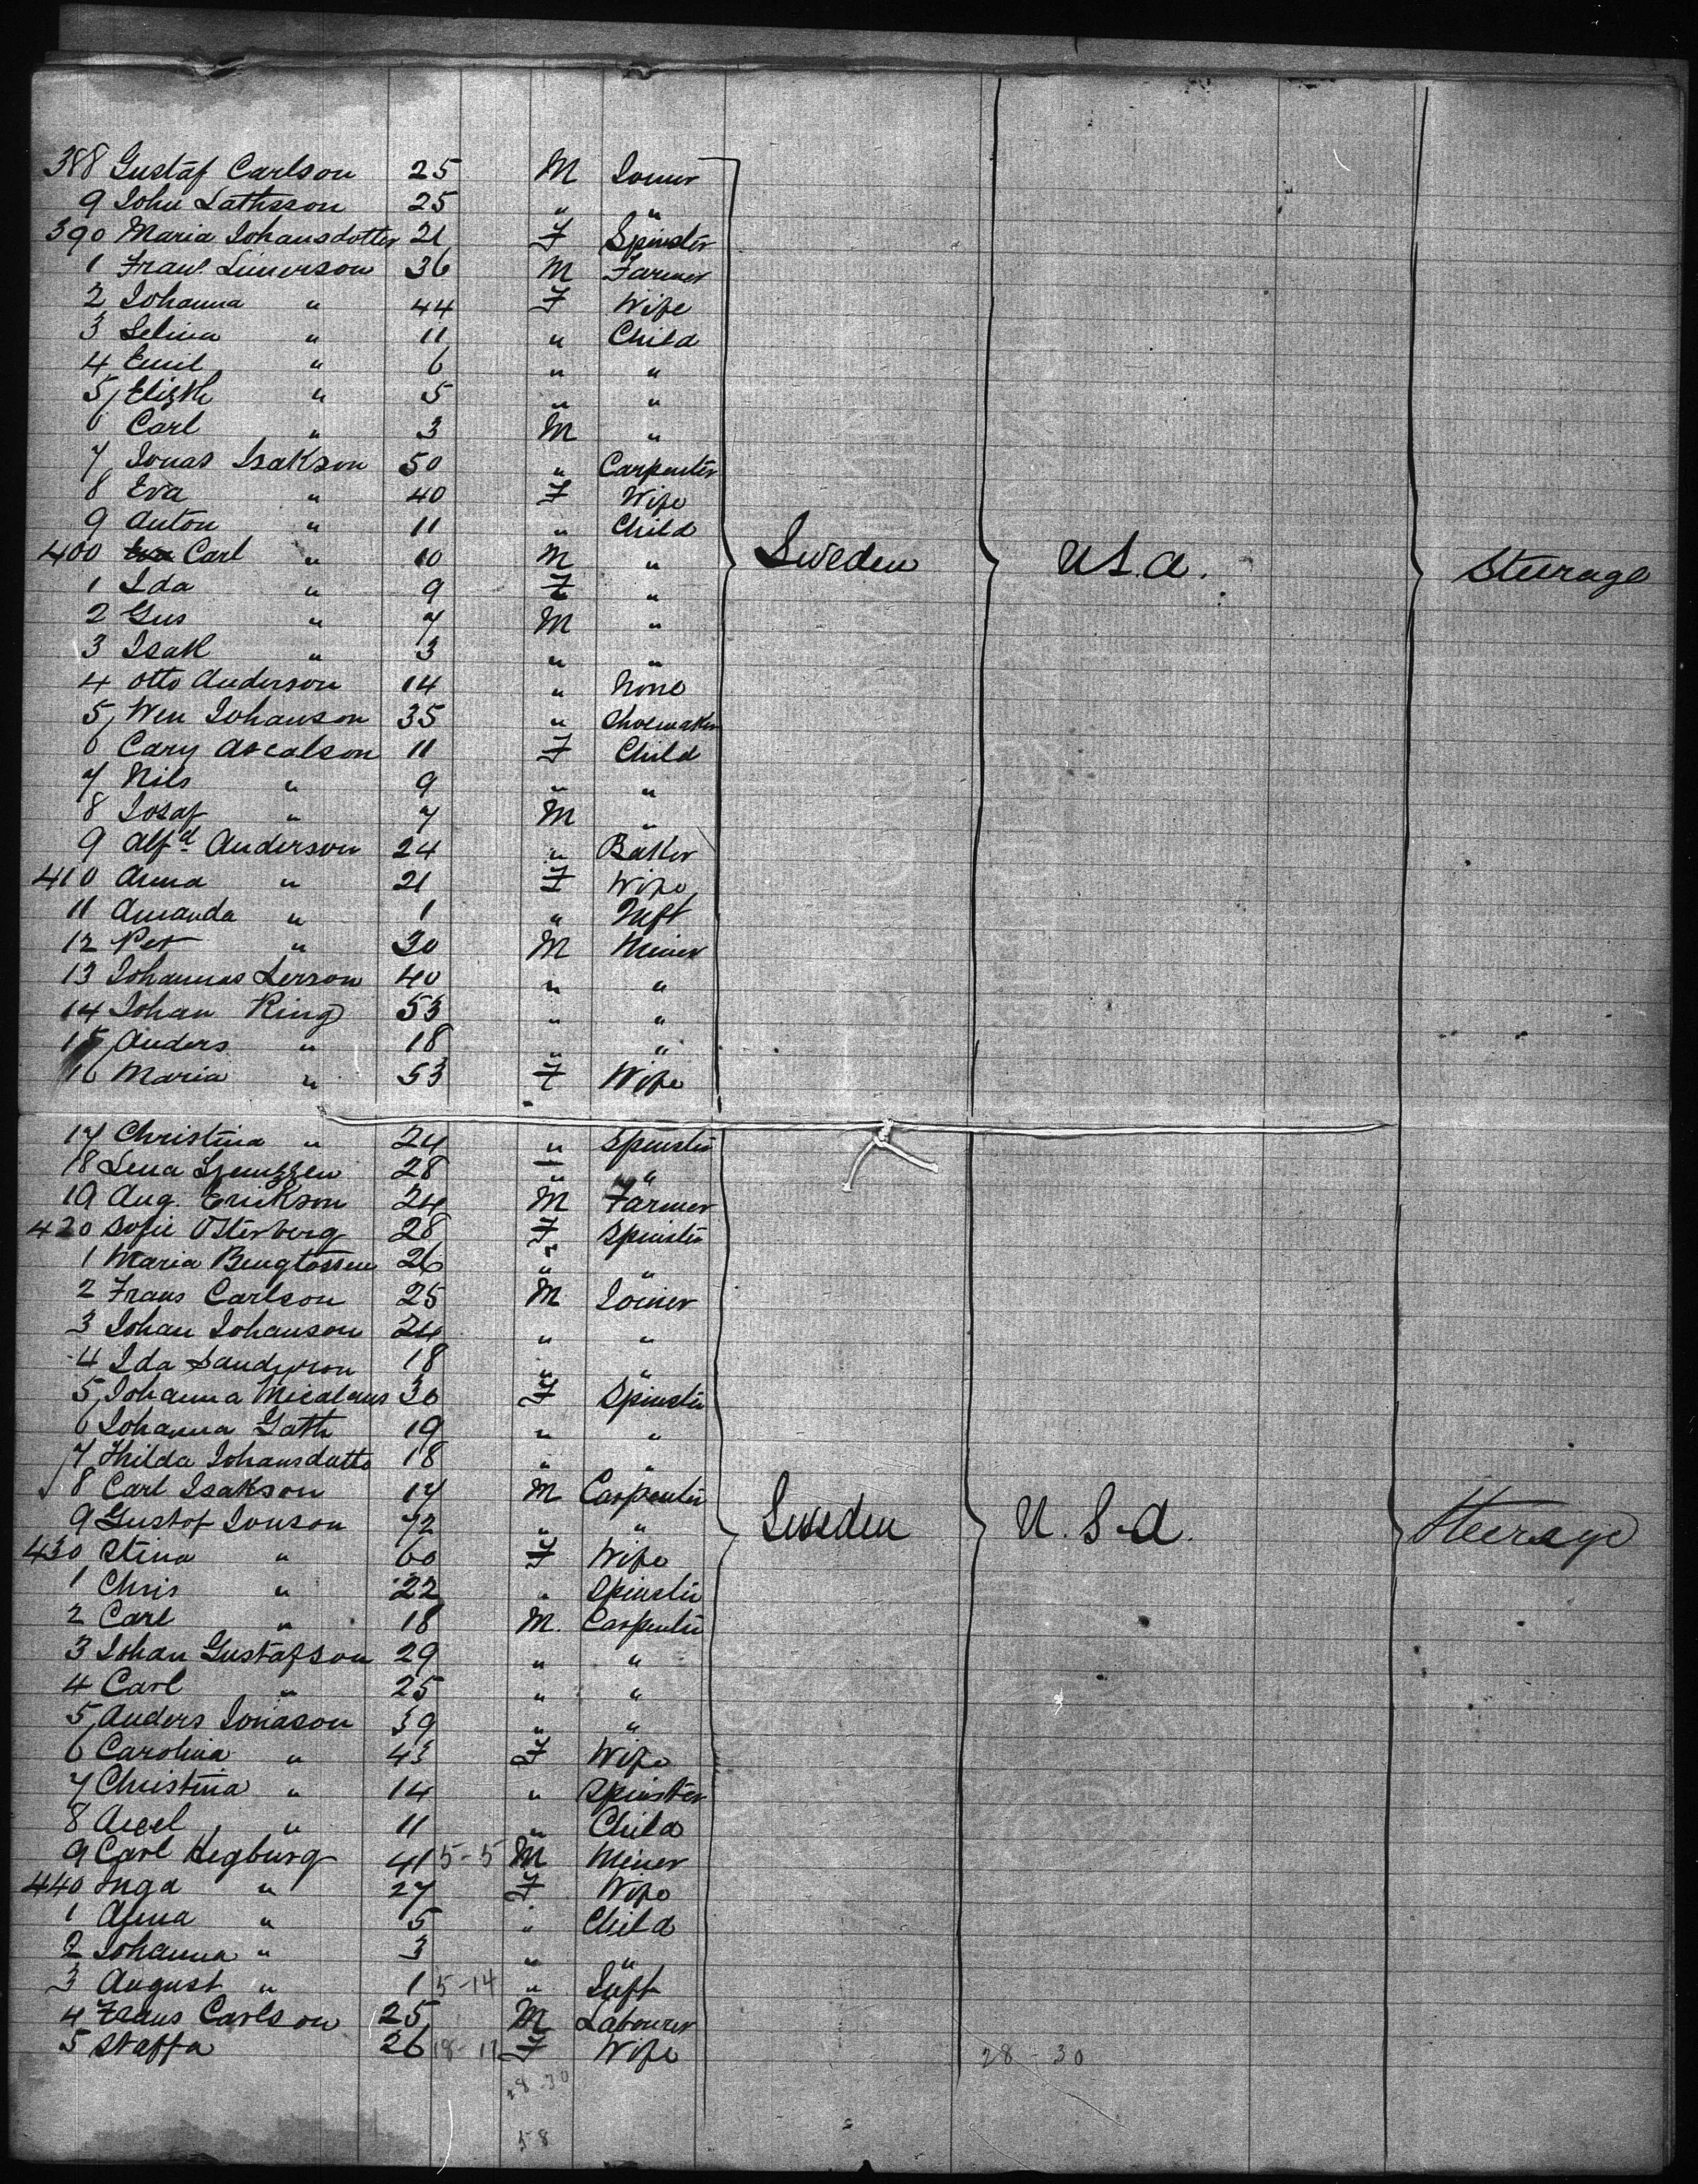 388 Gustaf Carlson 25 M Joiner
9 John Lathsson 25 " "
390 Maria Johansdotter 21 F Spinster
1 Frans 36 M Farmer
2 Johanna " 44 F Wife
3 Selina " 11 " Child
4 Emil " 6 " "
5 Elizth " 5 " "
6 Carl " 3 M "
7 Jonas Isakson 50 " Carpenter
8 Eva " 40 F Wife
9 Anton " 11 " Child
400 Carl " 10 M " Sweden U.S.A. Steerage
1 Ida " 9 F "
2 Gus " 7 M "
3 Isak " 3 " "
4 Otto Anderson 14 " None
5 Wm Johanson 35 " Shoemaker
6 Cary Ascalson 11 F Child
7 Nils " 9 " "
8 Josaf " 7 M "
9 Alfd Anderson 24 " Baker
410 Anna " 21 F Wife
11 Amanda " 1 " Inft
12 Pet " 30 M Miner
13 Johannas Lerson 40 " "
14 Johan Ring 53 " "
15 Anders " 18 " "
16 Maria " 53 F Wife
17 Christina " 24 " Spinster
18 Lena 28 " "
19 Aug. Erikson 24 M Farmer
420 Sofie Osterberg 28 F Spinster
1 Maria Bengtossen 26 " "
2 Frans Carlson 25 M Joiner
3 Johan Johanson 24 " "
4 Ida Sanderson 18 " "
5 Johanna 30 F Spinster
6 Johanna Gath 19 " "
7 Thilda Johansdatto 18 " "
8 Carl Isakson 17 M Carpenter
9 Gustof Jonson 72 " " Sweden U.S.A. Steerage
430 Stina " 60 F Wife
1 Chris " 22 " Spinster
2 Carl " 18 M. Carpenter
3 Johan Gustafson 29 " "
4 Carl " 25 " "
5 Anders Jonason 39 " "
6 Carolina " 43 F Wife
7 Christina " 14 " Spinster
8 Axel " 11 " Child
9 Carl Hegburg 41 5-5 M Miner
440 Inga " 27 F Wife
1 " 5 " Child
2 Johanna " 3 " "
3 August " 1 5-14 " Inft
4 Frans Carlson 25 M Labourer
5 Staffa 26 18-11 F Wife 28-30
28-30
58